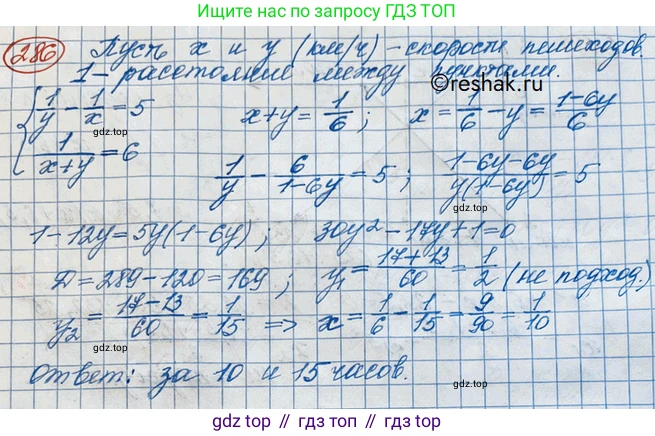 Ещё больше решений и ответов
на сайте по запросу ГДЗ ТОП
286 Пусть x и y (км/ч) - скорости пешеходов.
1 - расстояние между пунктами.
©reshak.ru
{ 1/y - 1/x = 5
1/(x+y) = 6
x+y = 1/6; x = 1/6 - y = (1-6y)/6
gdz.top
1/y - 6/(1-6y) = 5; (1-6y-6y)/(y(1-6y)) = 5
1-12y=5y(1-6y); 30y²-17y+1=0
D=289-120=169; y₁=(17+13)/60=1/2 (не подход.)
y₂=(17-13)/60=1/15 => x=1/6-1/15=9/90=1/10
Ответ: за 10 и 15 часов.
gdz.top // gdz.top // gdz.top // gdz.top